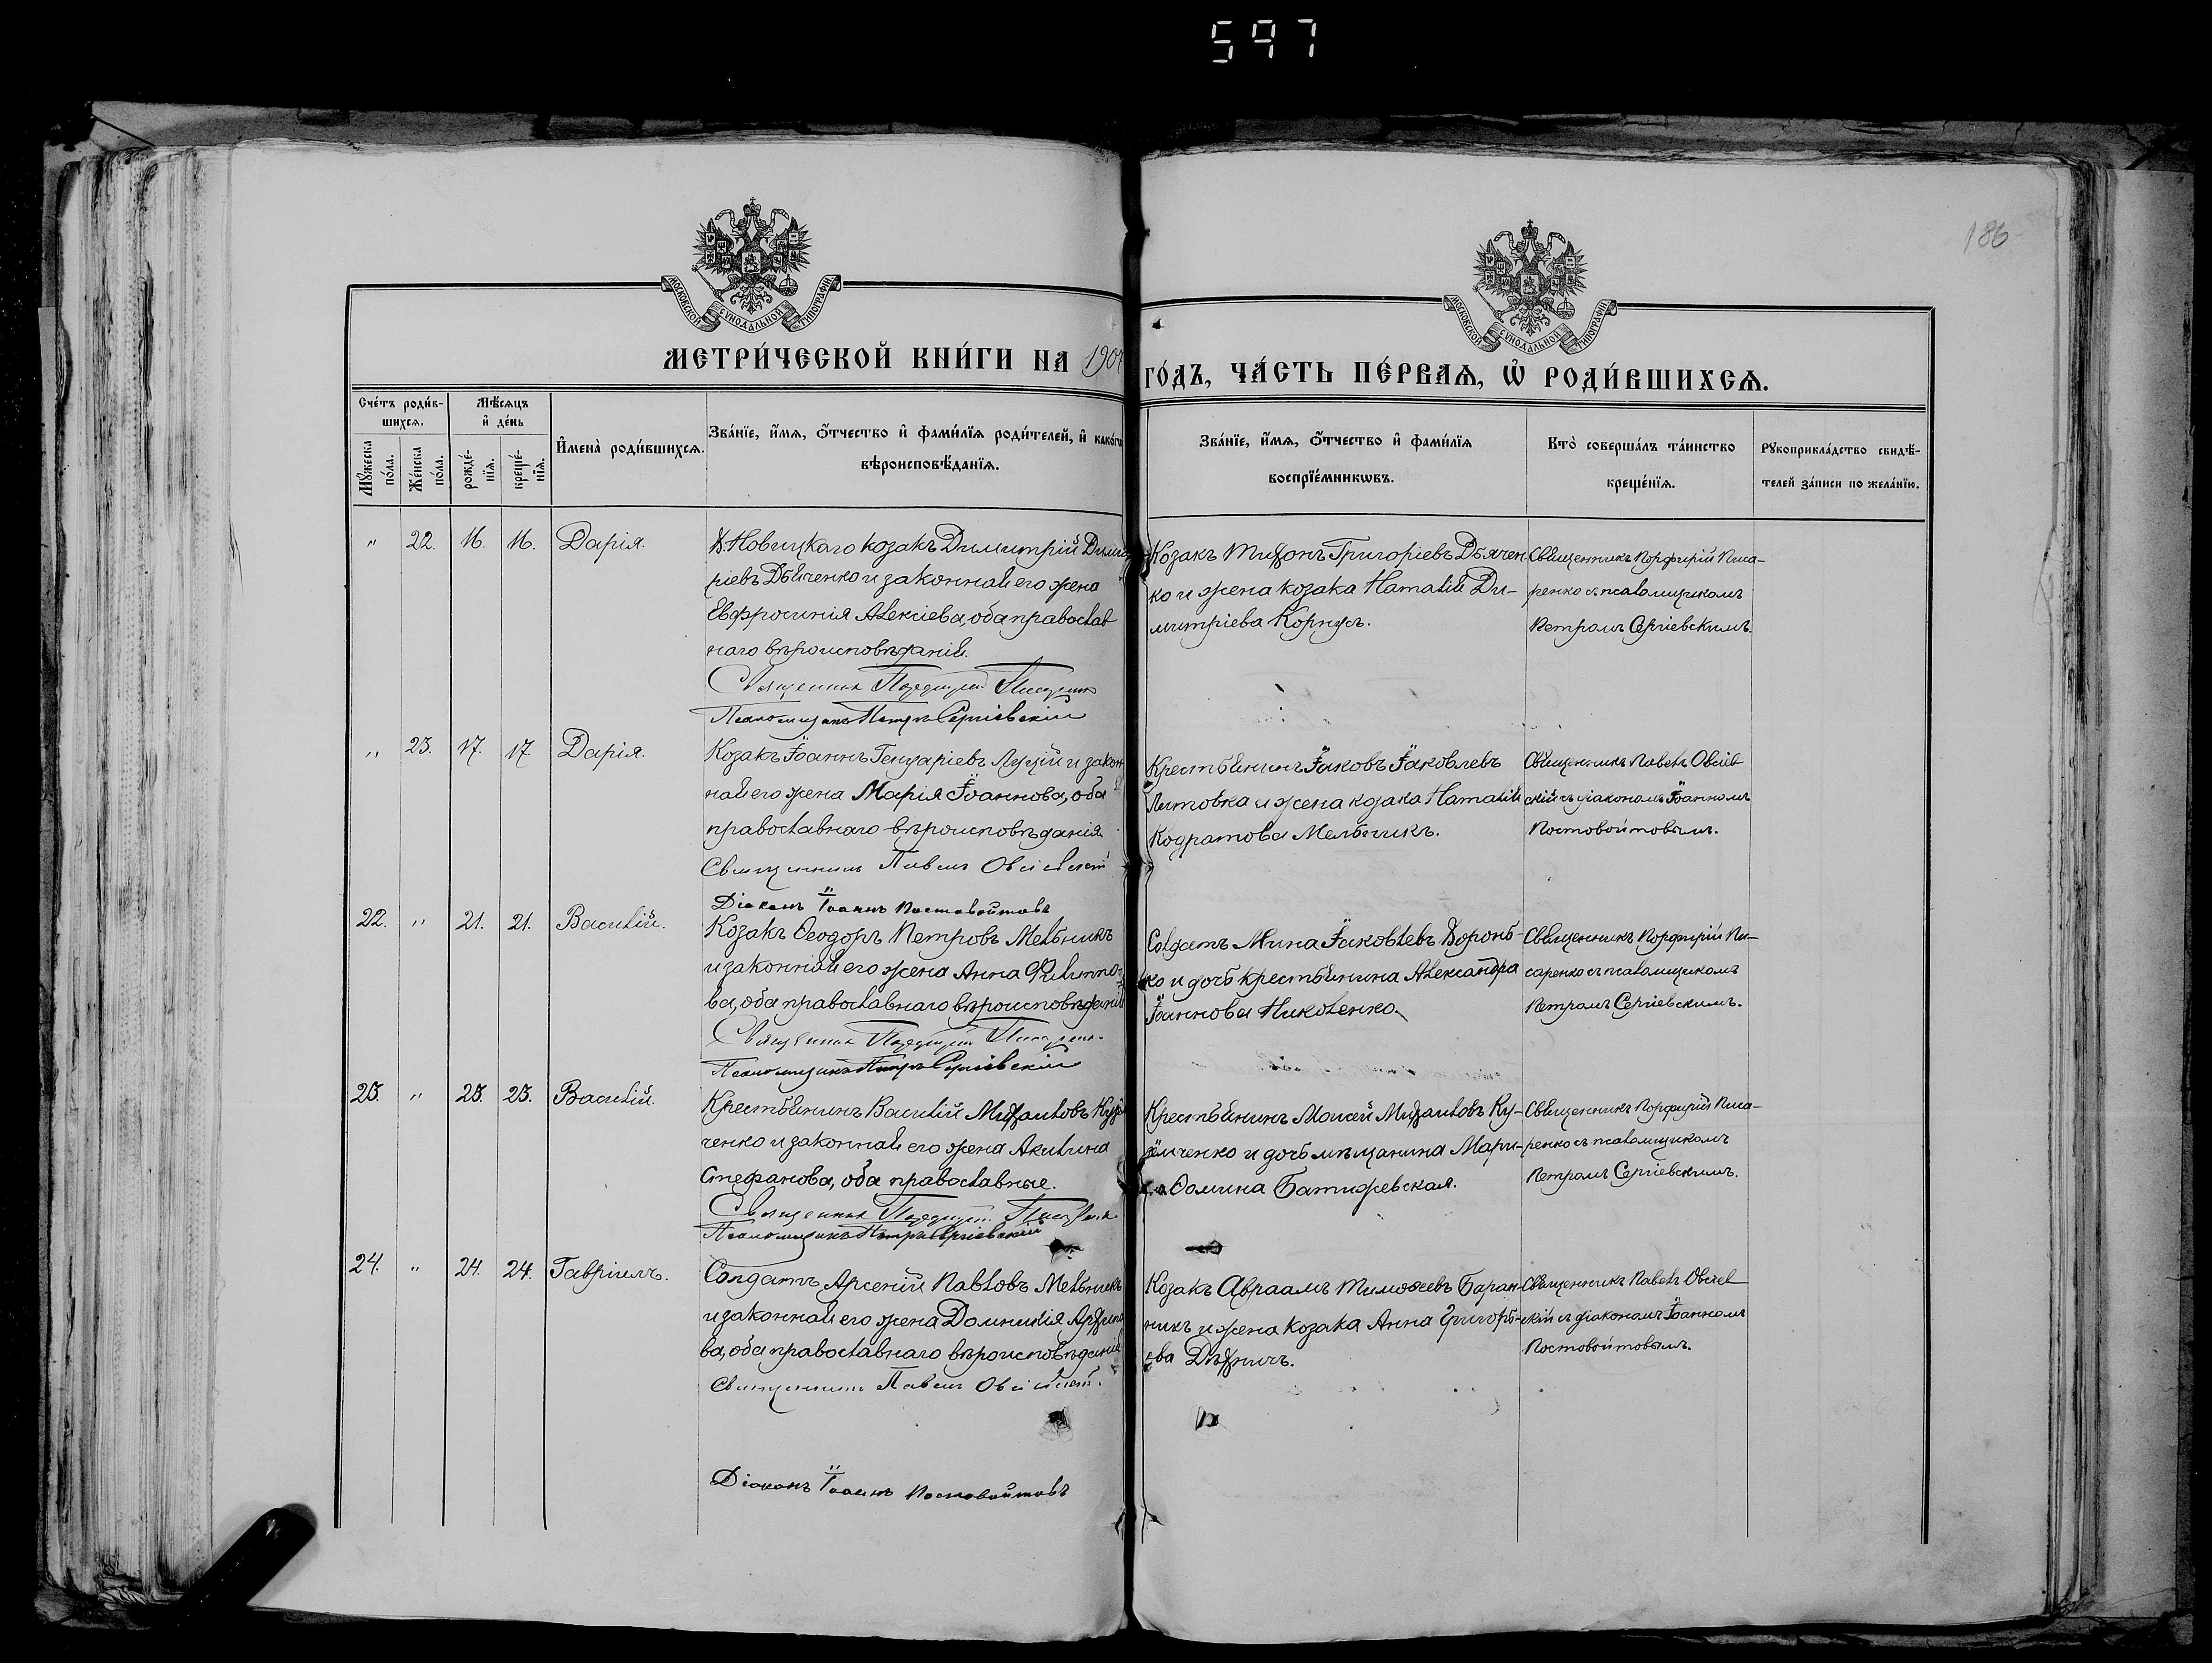 597
186
МОСКОВСКОЙ СѴНОДАЛЬНОЙ ТИПОГРАФІИ
МОСКОВСКОЙ СѴНОДАЛЬНОЙ ТИПОГРАФІИ
МЕТРИ́ЧЕСКОЙ КНИ́ГИ НА 1907
ГО́ДЪ, ЧА́СТЬ ПЕ́РВАѦ, Ѡ РОДИ́ВШИХСѦ.
Сче́тъ роди́в-
шихсѧ.
Мꙋ́жеска по́ла.
Же́нска по́ла.
Мѣ́сѧцъ
и҆ де́нь
рожде́-
нїѧ.
креще́-
нїѧ.
И҆мена̀ роди́вшихсѧ.
Зва́нїе, и҆́мѧ, ѻ҆́тчество и҆ фами́лїѧ роди́телей, и҆ како́гѡ
вѣроисповѣ́данїѧ.
Зва́нїе, и҆́мѧ, ѻ҆́тчество и҆ фами́лїѧ
воспрїе́мникѡвъ.
Кто̀ соверша́лъ та́инство
креще́нїѧ.
Рꙋкоприкла́дство свидѣ́-
телей за́писи по жела́нїю.
" 22. 16. 16. Дарія.
Новицкаго козакъ Димитрій Дими
ріевъ Дьяченко и законная его жена
Евфросинія Алексіева, оба православ
наго вѣроисповѣданія.
Священникъ Порфирій Писаренко
Псаломщикъ Петръ Сергіевскій
Козакъ Тихонъ Григоріевъ Дьячен
ко и жена козака Наталія Ди-
митріева Корпусъ.
Священникъ Порфирій Писа-
ренко съ псаломщикомъ
Петромъ Сергіевскимъ.
" 23. 17. 17 Дарія.
Козакъ Іоаннъ Генуаріевъ Луцій и закон
ная его жена Марія Іоаннова, оба
православнаго вѣроисповѣданія.
Священникъ Павелъ Овсіевскій
Діаконъ Іоаннъ Постовойтовъ
Крестьянинъ Іаковъ Іаковлевъ
Литовка и жена козака Наталія
Кодратова Мельникъ.
Священникъ Павелъ Овсіев
скій съ діакономъ Іоанномъ
Постовойтовымъ.
22. " 21. 21. Василій.
Козакъ Ѳеодоръ Петровъ Мельникъ
и законная его жена Анна Филиппо-
ва, оба православнаго вѣроисповѣданія
Священникъ Порфирій Писаренко
Псаломщикъ Петръ Сергіевскій
Солдатъ Мина Іаковлевъ Доронь-
ко и дочь крестьянина Александра
Іоаннова Николенко.
Священникъ Порфирій Пи-
саренко съ псаломщикомъ
Петромъ Сергіевскимъ.
23. " 23. 23. Василій.
Крестьянинъ Василій Михаиловъ
ченко и законная его жена Акилина
Стефанова, оба православные.
Священникъ Порфирій Писаренко
Псаломщикъ Петръ Сергіевскій
Крестьянинъ Моисей Михаиловъ Ку-
и дочь мѣщанина Мари-
Ѳомина Батижевская.
Священникъ Порфирій Писа-
ренко съ псаломщикомъ
Петромъ Сергіевскимъ.
24. " 24. 24. Гавріилъ.
Солдатъ Арсеній Павловъ Мельникъ
и законная его жена Домникія
ва, оба православнаго вѣроисповѣданія
Священникъ Павелъ Овсіевскій.
Діаконъ Іоаннъ Постовойтовъ
Козакъ Авраамъ Тимоѳеевъ Баран-
никъ и жена козака Анна Григорь-
ева Дѣхничъ.
Священникъ Павелъ Овсіев
скій съ діакономъ Іоанномъ
Постовойтовымъ.